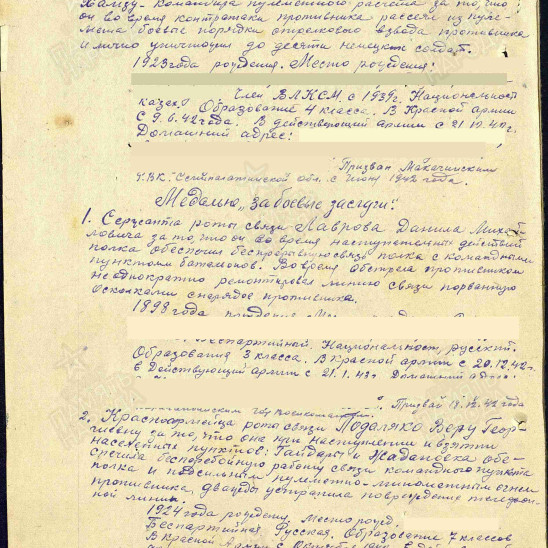 командира пулеметного расчета за то, что:
он во время контратаки противника рассеял из пуле-
мета боевые порядки стрелкового взвода противника
и лично уничтожил до десяти немецких солдат.
1923 года рождения. Место рождения:
Член ВЛКСМ с 1939г. Национальность
казах. Образование 4 класса. В Красной армии
с 9.6.42 года. В действующей армии с 21.12.42г.
Домашний адрес:
Призван
РВК. Семипалатинской обл. с июня 1942 года.
Медалью „за боевые заслуги":
1. Сержанта роты связи Лаврова Данила Михай-
ловича за то, что он во время наступательных действий
полка обеспечил бесперебойную связь полка с командными
пунктами батальонов. Во время обстрела противником
неоднократно ремонтировал линию связи порванную
осколками снарядов противника.
1898 года рождения
Беспартийный. Национальность, русский.
Образование 3 класса. В Красной армии с 20.12.42г.
в Действующей армии с 21.1.43г. Домашний адрес.
Призван 18.12.42 года
2. Красноармейца роты связи Подаляко Веру Геор-
гиевну за то, что она при наступлении и взятии
населенных пунктов: Гайдары и Жадановка обе-
спечила бесперебойную работу связи командного пункта
полка и под сильным пулеметно-минометным огнем
противника, дважды устранила повреждение телефон-
ной линии.
1924 года рождения. Место рожд.
Беспартийная Русская. Образование 7 классов
В Красной Армии с